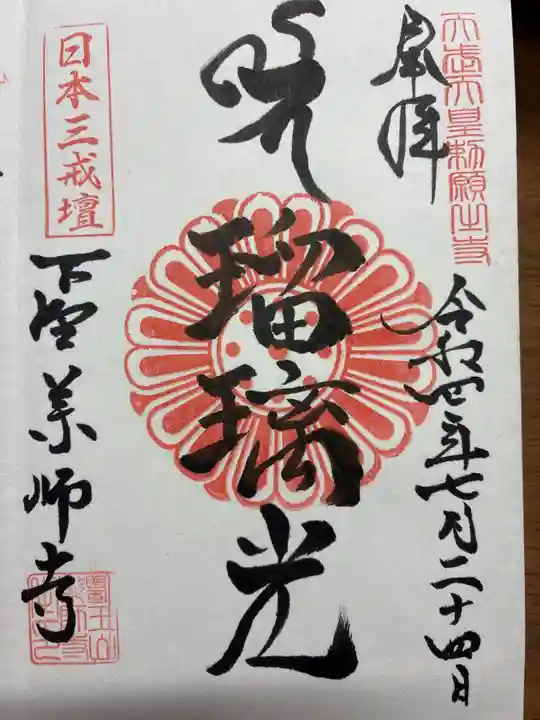 天武天皇勅願之寺
奉拝
令和四年七月二十四日
瑠璃光
日本三戒壇
下野薬師寺